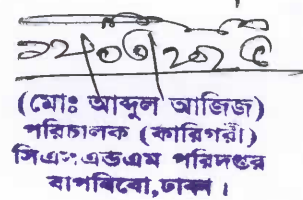 (মোঃ আব্দুল আজিজ)
পরিচালক (কারিগরী)
সিএসএন্ডএম পরিদপ্তর
বাপবিবো, ঢাকা ।